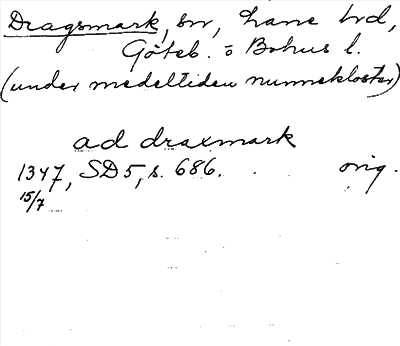 Dragsmark, sn, Lane hd,
Göteb. o Bohus l.
(under medeltiden nunnekloster)
ad draxmark
1347, SD5, s. 686. orig.
15/7